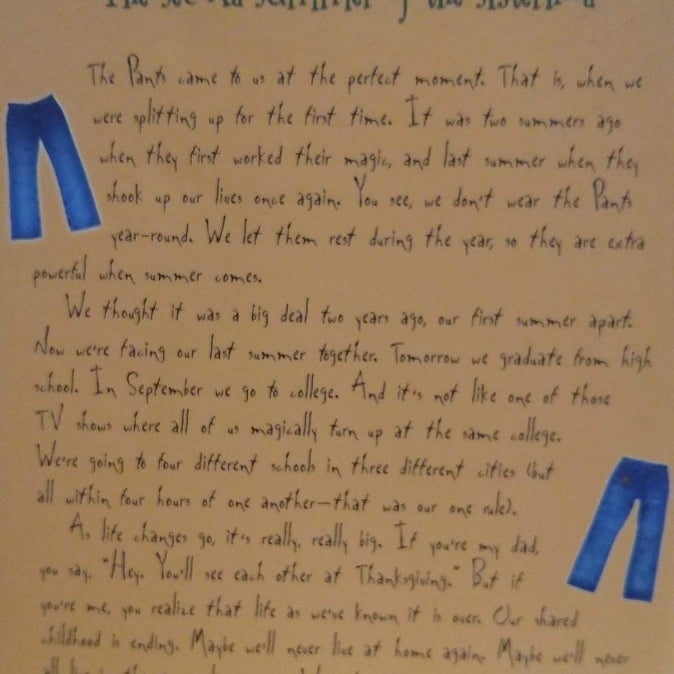 The Second Summer of the Sisterhood
The Pants came to us at the perfect moment. That is, when we
were splitting up for the first time. It was two summers ago
when they first worked their magic, and last summer when they
shook up our lives once again. You see, we don't wear the Pants
year-round. We let them rest during the year, so they are extra
powerful when summer comes.
We thought it was a big deal two years ago, our first summer apart.
Now we're facing our last summer together. Tomorrow we graduate from high
school. In September we go to college. And it's not like one of those
TV shows where all of us magically turn up at the same college.
We're going to four different schools in three different cities (but
all within four hours of one another—that was our one rule).
As life changes go, it's really, really big. If you're my dad,
you say, "Hey. You'll see each other at Thanksgiving." But if
you're me, you realize that life as we've known it is over. Our shared
childhood is ending. Maybe we'll never live at home again. Maybe we'll never